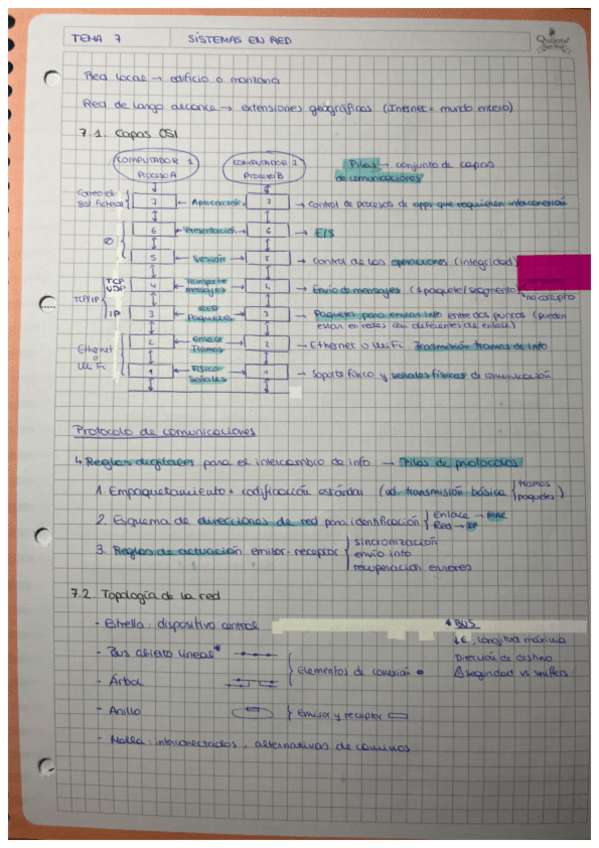 TEMA 7 SISTEMAS EN RED
Quijote
Red local → edificio o manzana
Red de largo alcance → extensiones geográficas (Internet = mundo entero)
7.1. Capas OSI
COMPUTADOR 1 PROCESO A
COMPUTADOR 2 PROCESO B
Pilas → conjunto de capas
de comunicaciones
7 Aplicación 7 → Control de procesos de apps que requieren interconexión
6 Presentación 6 → E/S
5 Sesión 5 → Control de las operaciones (integridad)
TCP UDP 4 Transporte mensajes 4 → Envío de mensajes (1 paquete/segmento)
no corrupto
TCP/IP
IP 3 RED Paquetes 3 → Paquetes para enviar info entre dos puntos (pueden
estar en redes diferentes de enlace)
Ethernet o WiFi
2 enlace tramas 2 → Ethernet o WiFi Trasmisión tramas de info
1 FÍSICO Señales 1 → Soporte físico y señales físicas de comunicación
Protocolo de comunicaciones
↳ Reglas digitales para el intercambio de info → Pilas de protocolos
1. Empaquetamiento + codificación estándar (ud. transmisión básica { tramas paquetes )
2. Esquema de direcciones de red para identificación { Enlace → MAC Red → IP
3. Reglas de actuación emisor-receptor { sincronización
envío info
recuperación errores
7.2. Topología de la red
- Estrella: dispositivo central
- Bus abierto lineal*
- Árbol
} Elementos de conexión
- Anillo } Emisor y receptor
- Malla: interconectados, alternativas de caminos
* BUS
↓€, longitud máxima
Dirección de destino
seguridad vs sniffers